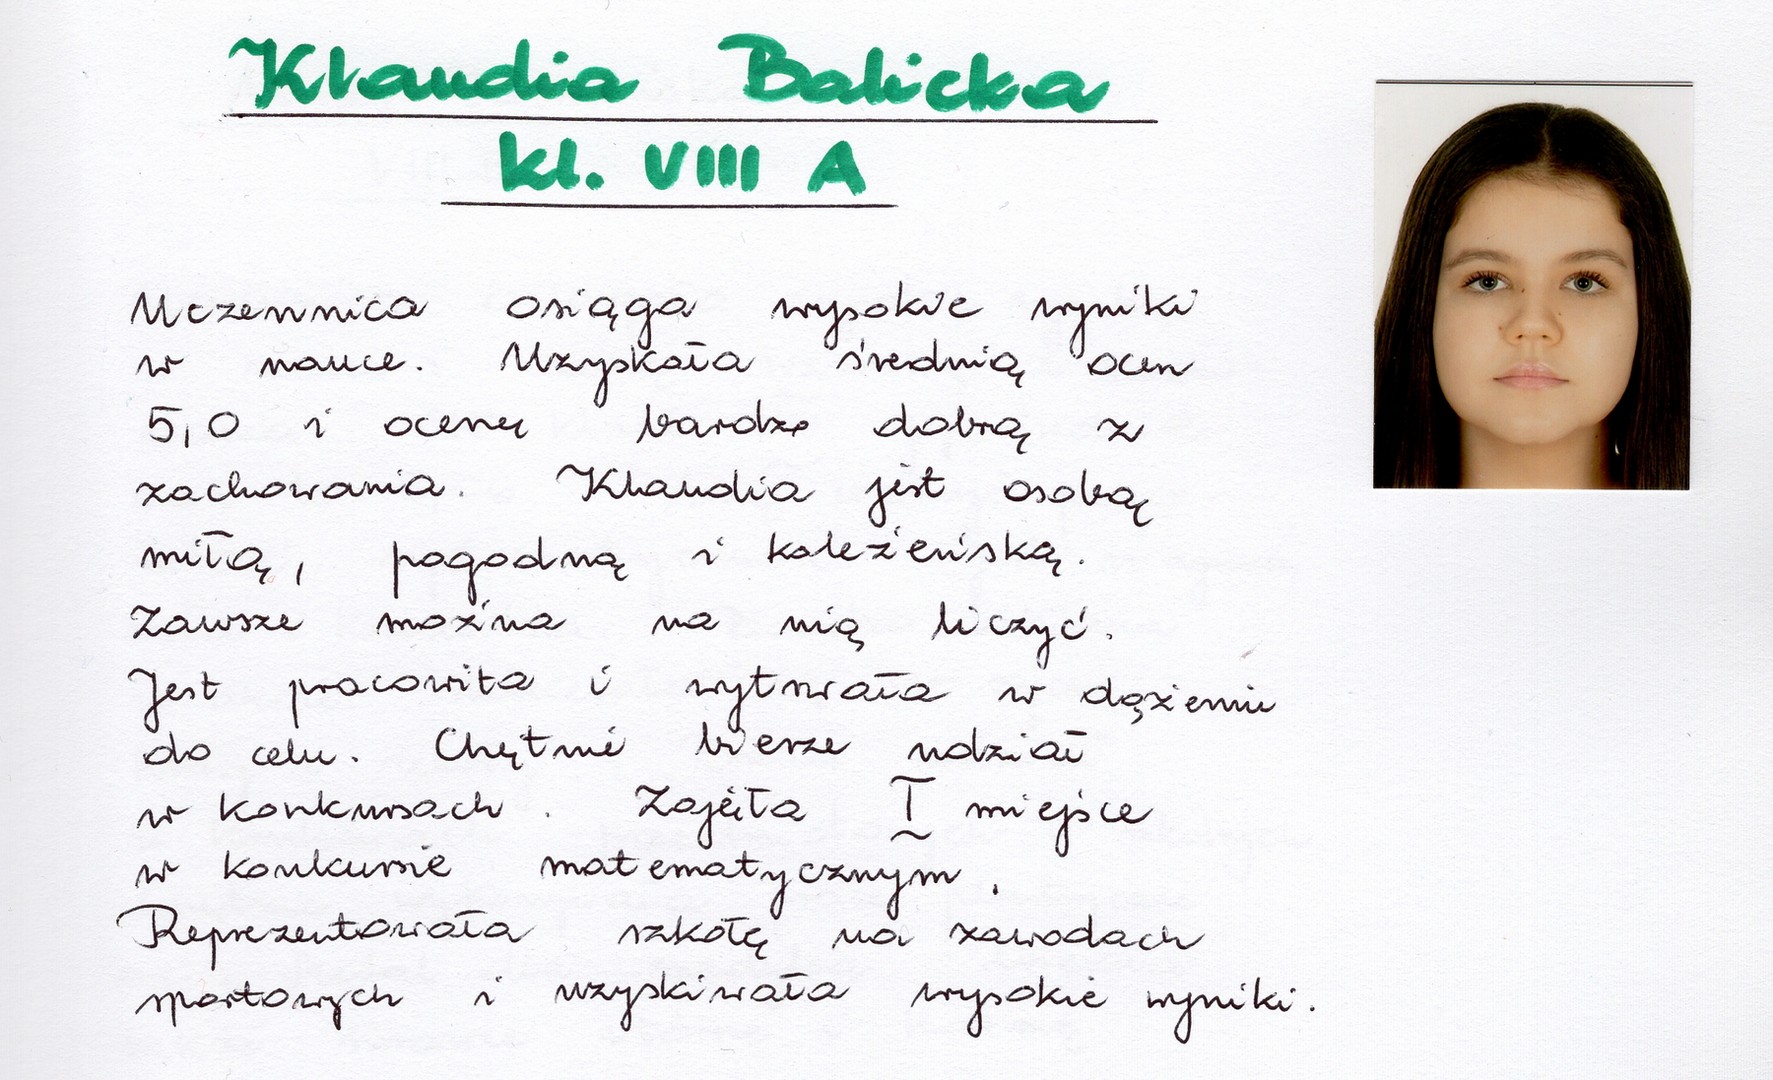 Klaudia Balicka
kl. VIII A
Uczennica osiąga wysokie wyniki
w nauce. Uzyskała średnią ocen
5,0 i ocenę bardzo dobrą z
zachowania. Klaudia jest osobą
miłą, pogodną i koleżeńską.
Zawsze można na nią liczyć.
Jest pracowita i wytrwała w dążeniu
do celu. Chętnie bierze udział
w konkursach. Zajęła I miejsce
w konkursie matematycznym.
Reprezentowała szkołę na zawodach
sportowych i uzyskiwała wysokie wyniki.